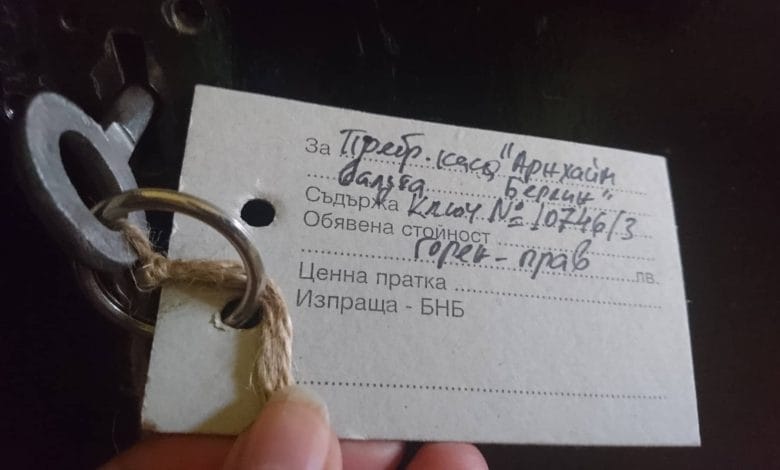 За Пребр. каса "Арнхайм
валута Берлин"
Съдържа ключ № 10746/3
Обявена стойност
горен - прав лв.
Ценна пратка
Изпраща - БНБ